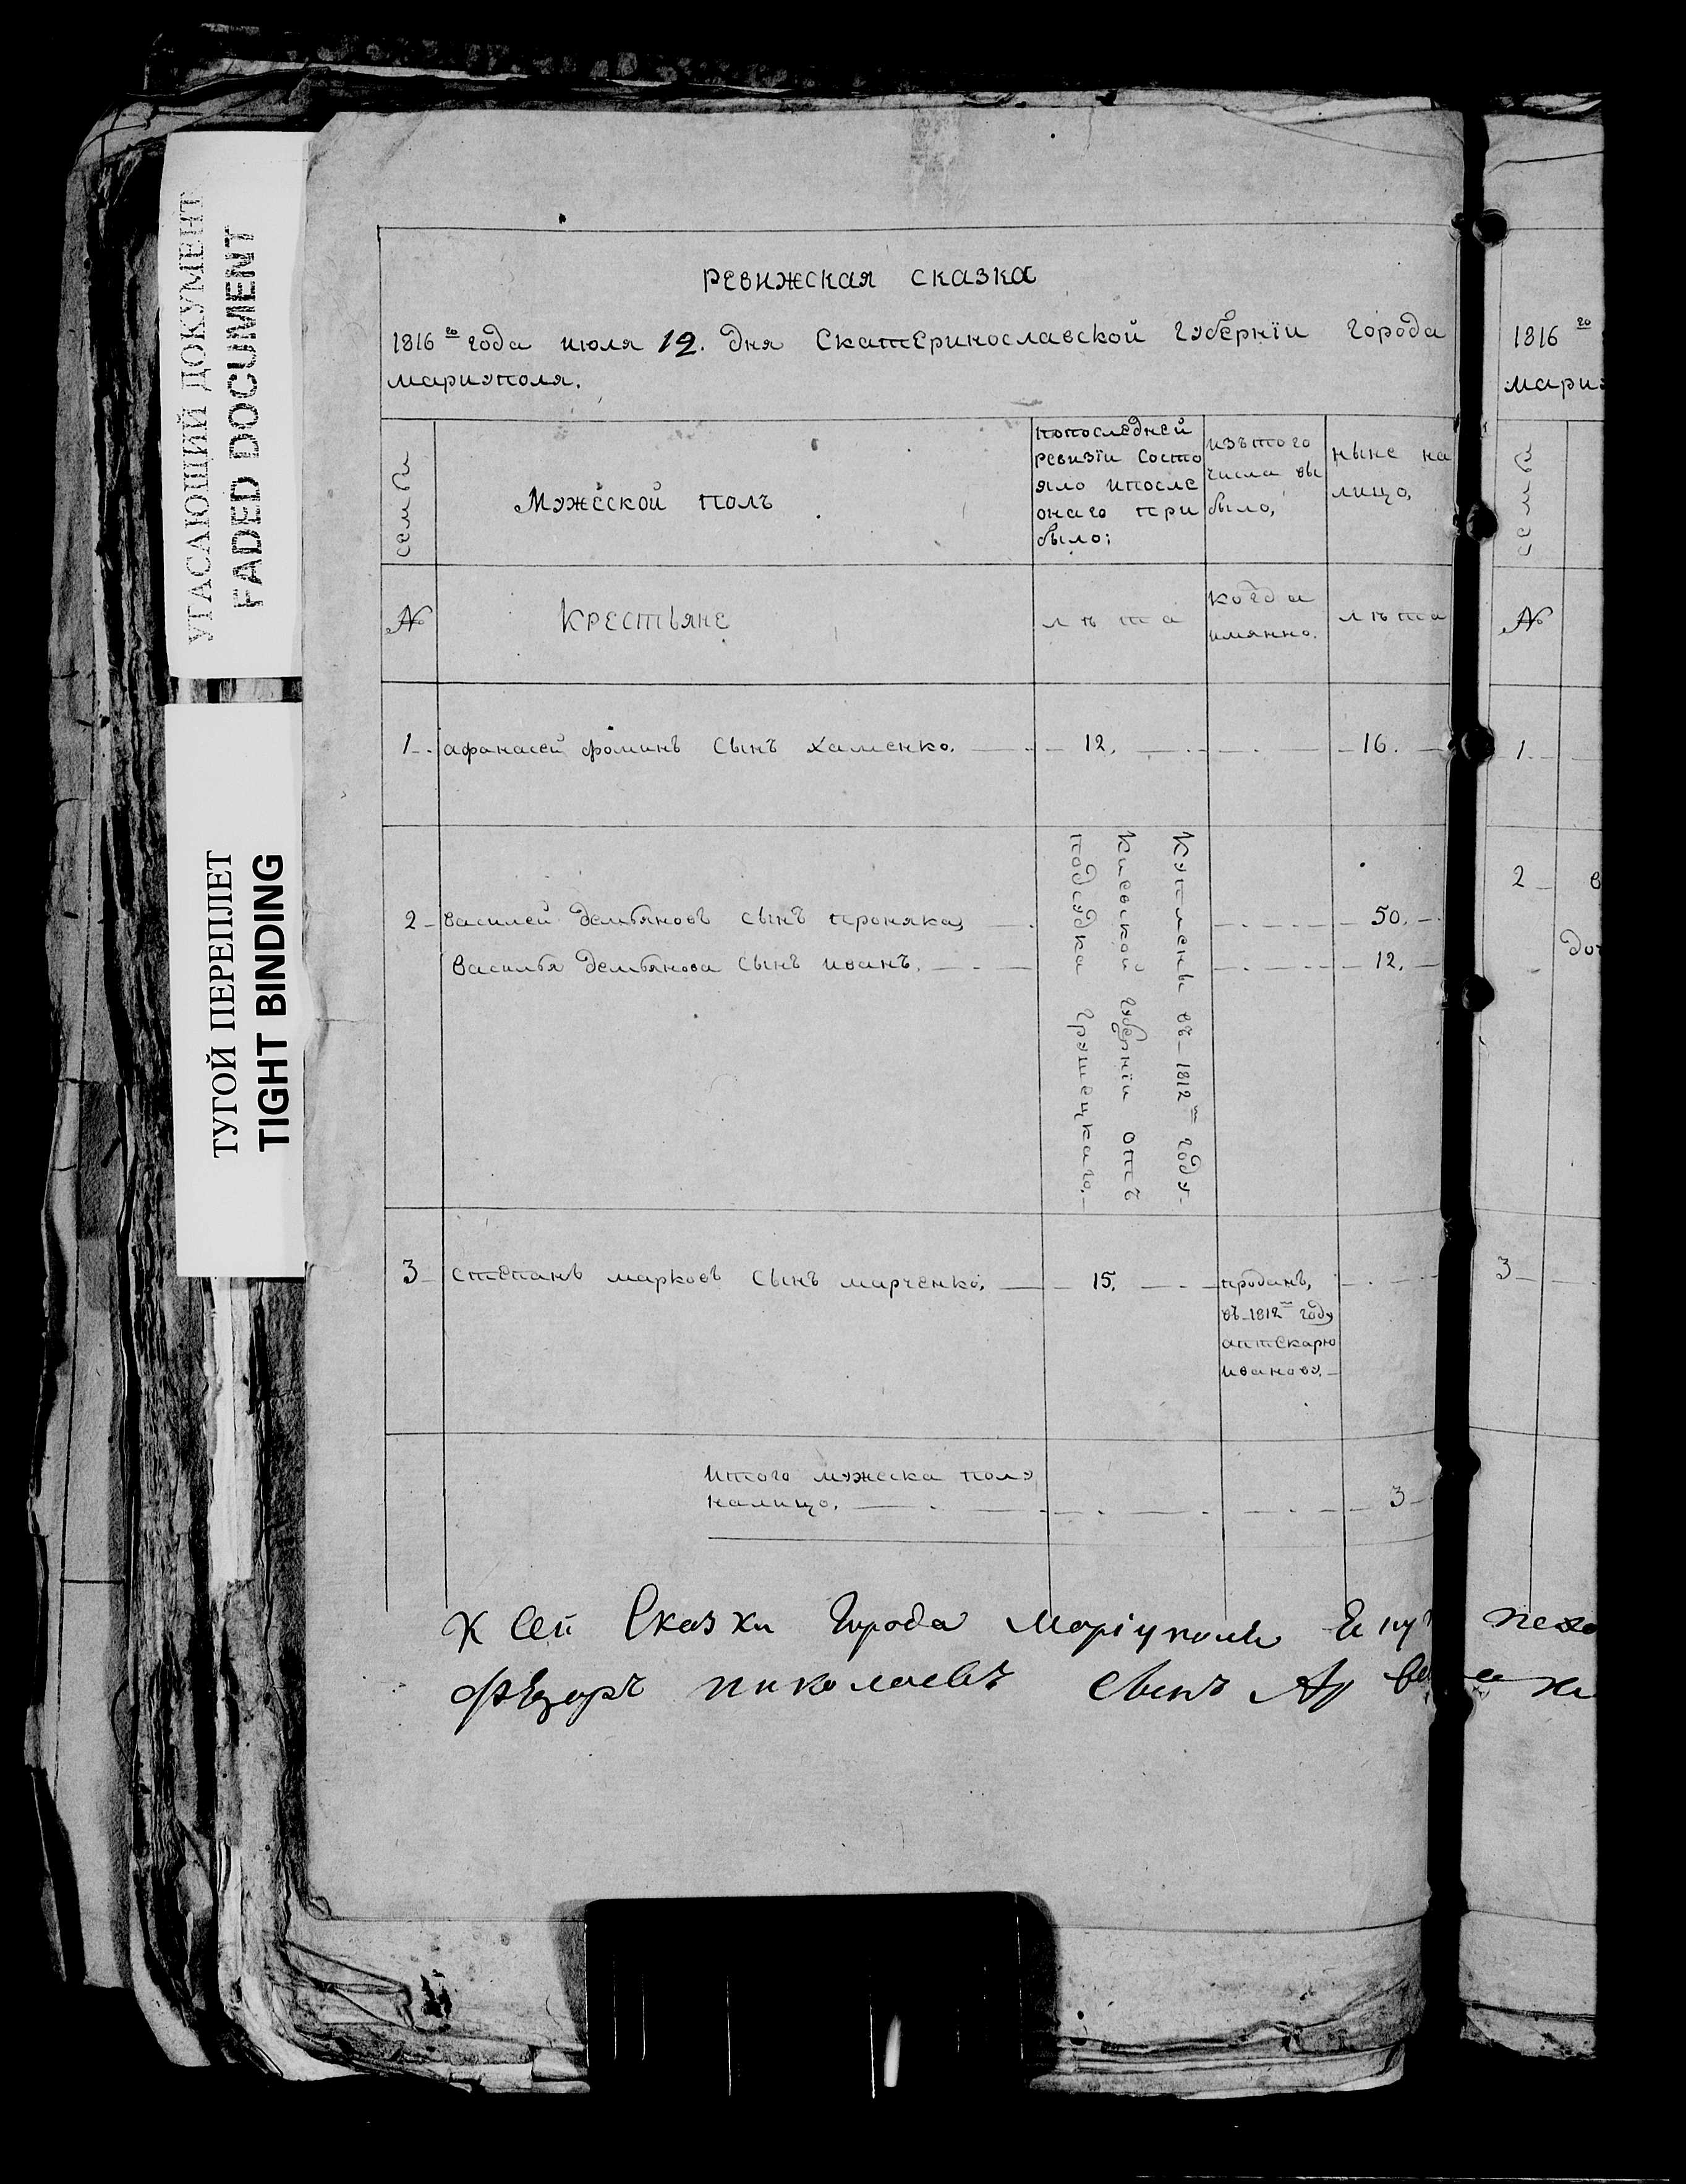 УГАСАЮЩИЙ ДОКУМЕНТ
FADED DOCUMENT
ТУГОЙ ПЕРЕПЛЕТ
TIGHT BINDING
Ревижская сказка
1816го года июля 12. дня Екатеринославской Губернїи города
мариуполя.
семьи
Мужеской полъ
попоследней
ревизїи состо
яло ипосле
онаго при
было;
изътого
числа вы
было,
ныне на
лицо,
№
Крестьяне
лѣта
когда
имянно.
лѣта
1 афанасей фоминъ сынъ хаменко. 12. 16.
2 василей демьяновъ сынъ проняка, 50.
Василья демьянова сынъ иванъ. 12.
Куплены въ 1812м году
Киевской губернїи отъ
подсудка Грушецкаго.
3 степанъ марковъ сынъ марченко, 15.
проданъ,
въ 1812м году
аптекарю
иванову.
Итого мужеска полу
налицо. 3
К Сей Сказки Города Маріуполя
Фёдоръ николаевъ Сынъ
1816го
мари
семьи
№
1.
2 в
доч
3